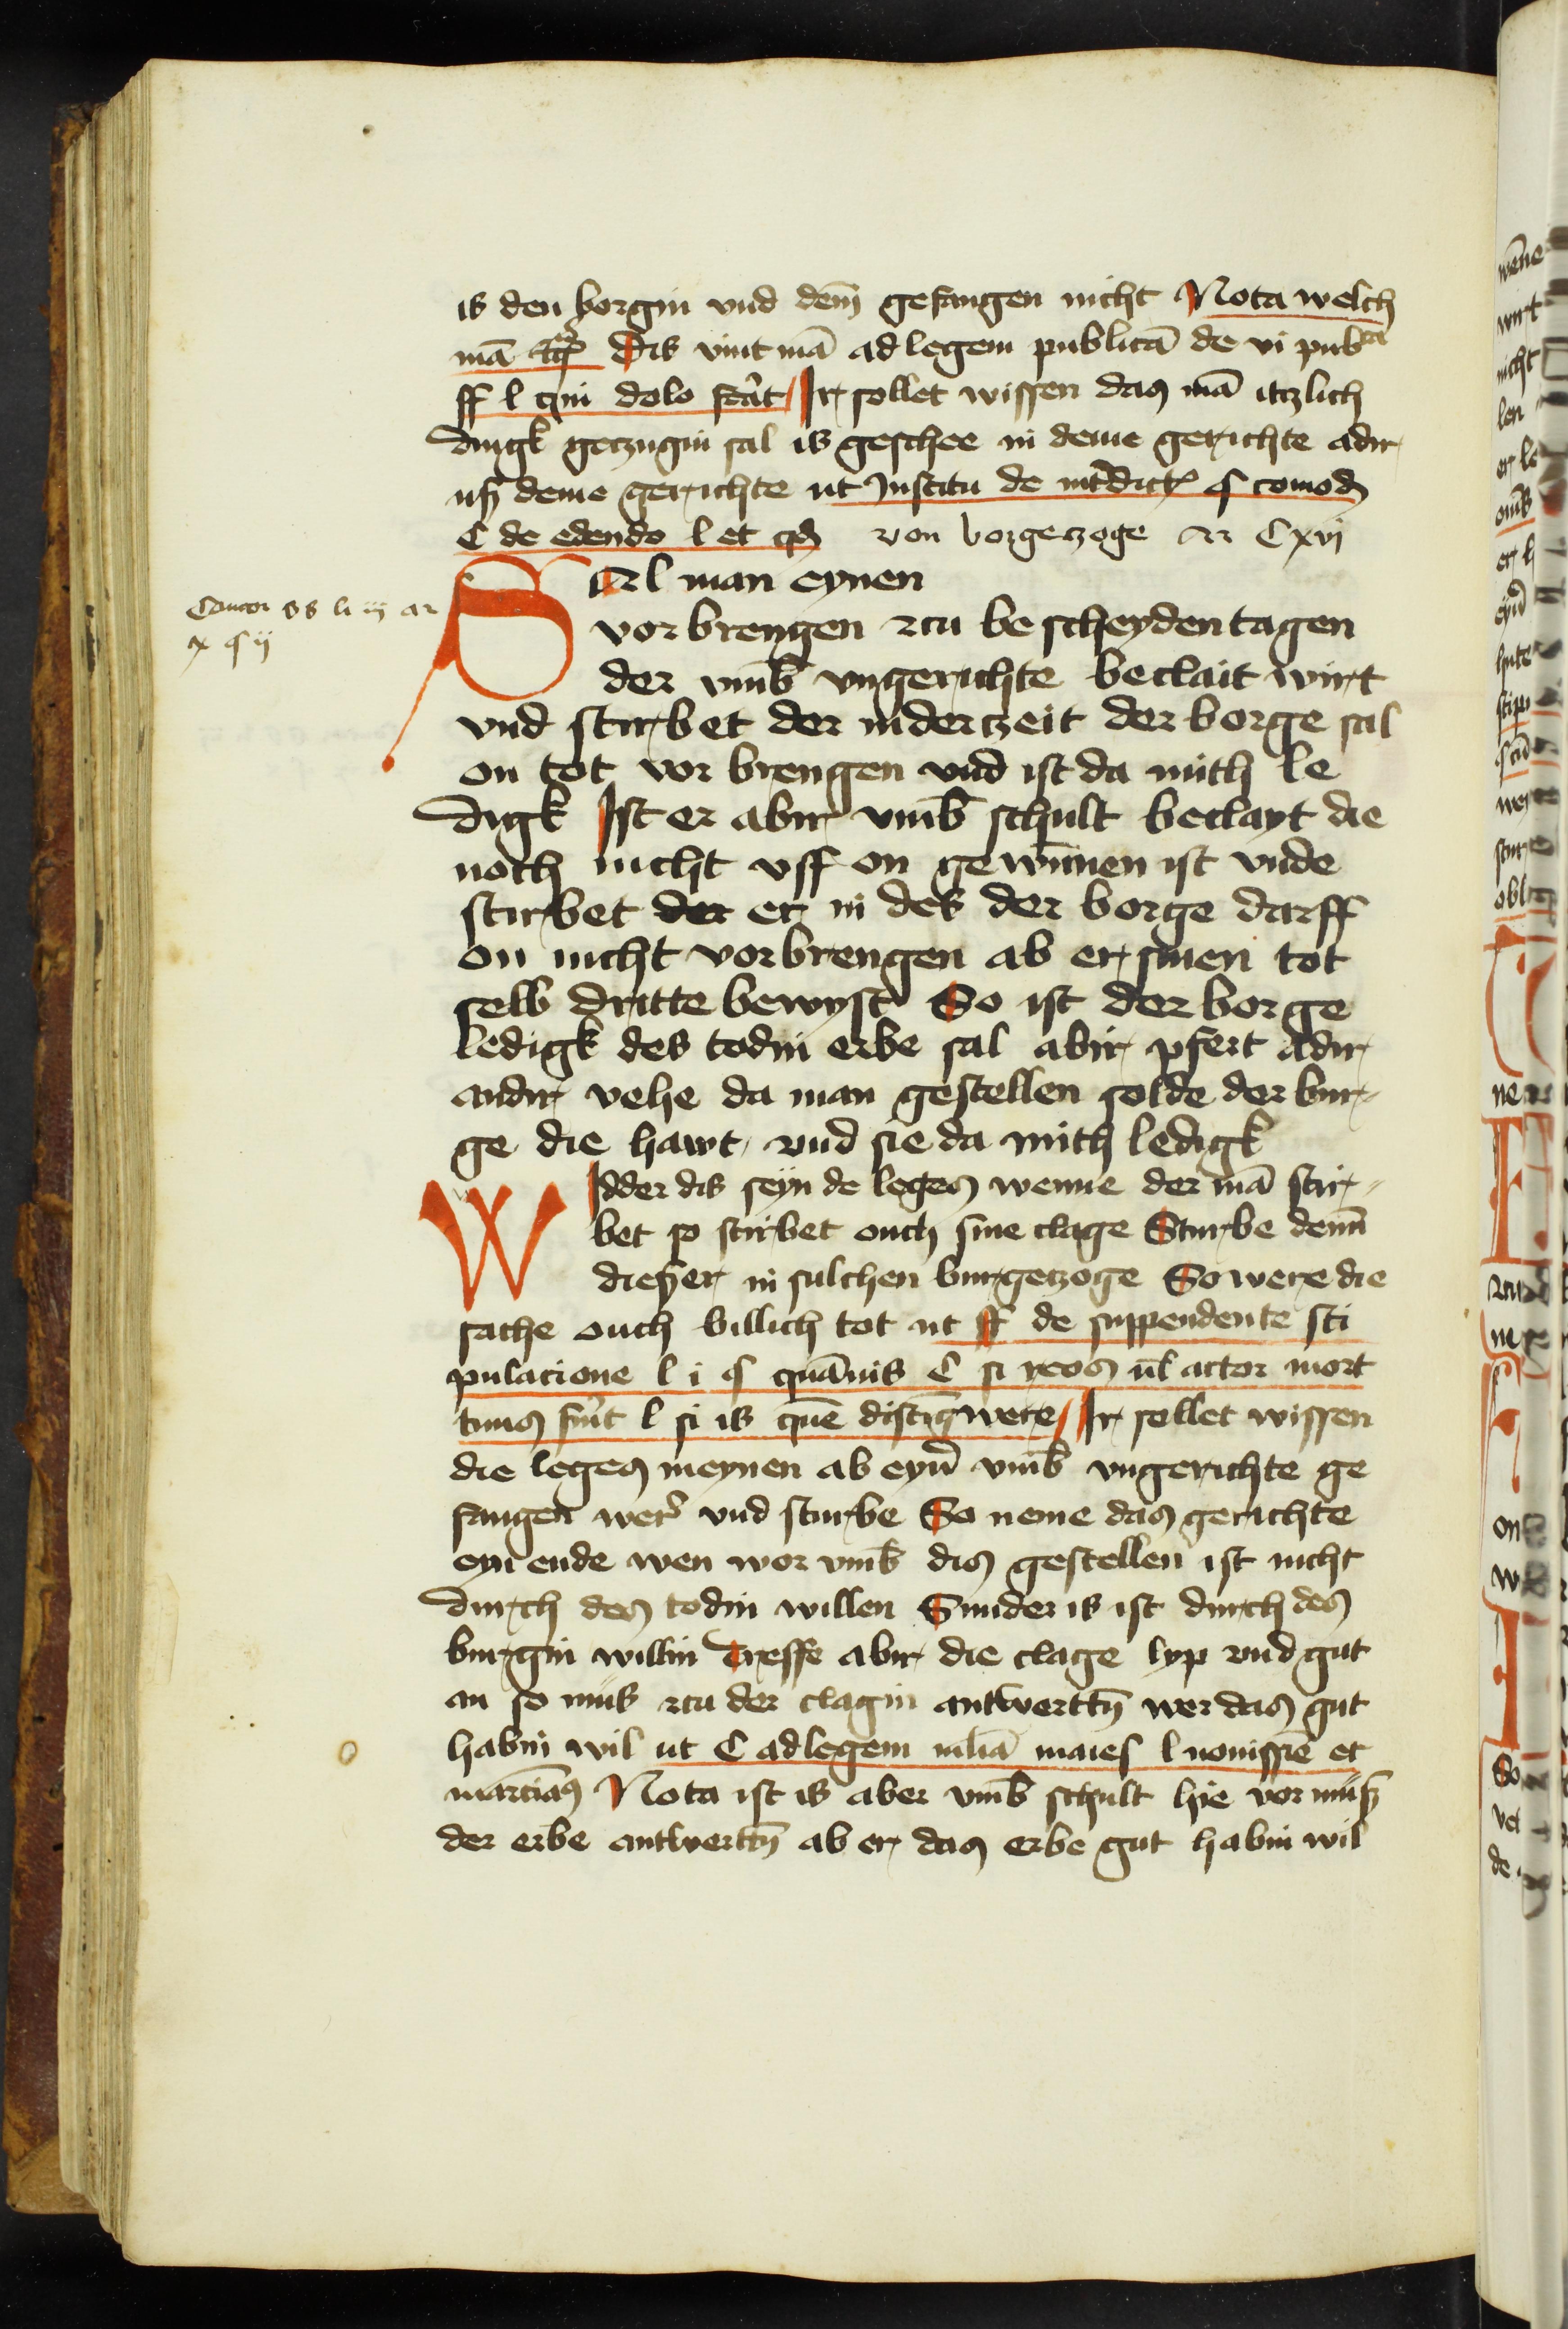 is den borgin vnd dem̄ gefangen nicht Nota welch
mā Dis vint mā ad legem publicā de vi pub
ff l qui dolo Ir sollet wissen das mā itzlich
dingk getzugin sal is geschee in deme gerichte adir
uß deme gerichte ut Institu de § comod
C de edendo l et von borgetzoge ar Cxvj
SAl man eynen
vor brengen zcu be scheyden tagen
der vmb̄ vngerichte beclait wirt
vnd stirbet der in der tzeit der borge sal
on tot vor brengen vnd ist da mith le
digk Ist er abir vmb̄ schult beclayt die
noch nicht vff on gewūnen ist vnde
stirbet der er in des der borge darff
on nicht vorbrengen ab er sinen tot
selb dritte bewyst So ist der borge
ledigk des todin erbe sal abir pfert adir
andir vehe da man gestellen solde der bur
ge die hawt vnd sie da mith ledigk
WIdder dis seyn de leges wenne der mā stir
bet so stirbet ouch sine clage Sturbe denn̄
dießer in sulchen burgetzoge So were die
sache ouch billich tot ut ff de suppendente sti
pulacione l i § quāuis C si reos ul̄ actor mort
tuus l si is quē Ir sollet wissen
die leges meynen ab eyn̄ vmb̄ vngerichte ge
fangen wer̄ vnd sturbe So neme das gerichte
eyn ende wen wor vmb̄ dis gestellen ist nicht
durch des todin willen Sunder is ist durch des
burgin willin Treffe abir die clage lyp vnd gut
an so mus zcu der clagin antwertn̄ wer das gut
habin wil ut C ad legem maies l et
Nota ist is aber vmb̄ schult hie vor muß
der erbe antwertn̄ ab er das erbe gut habin wil
ar
x § ij